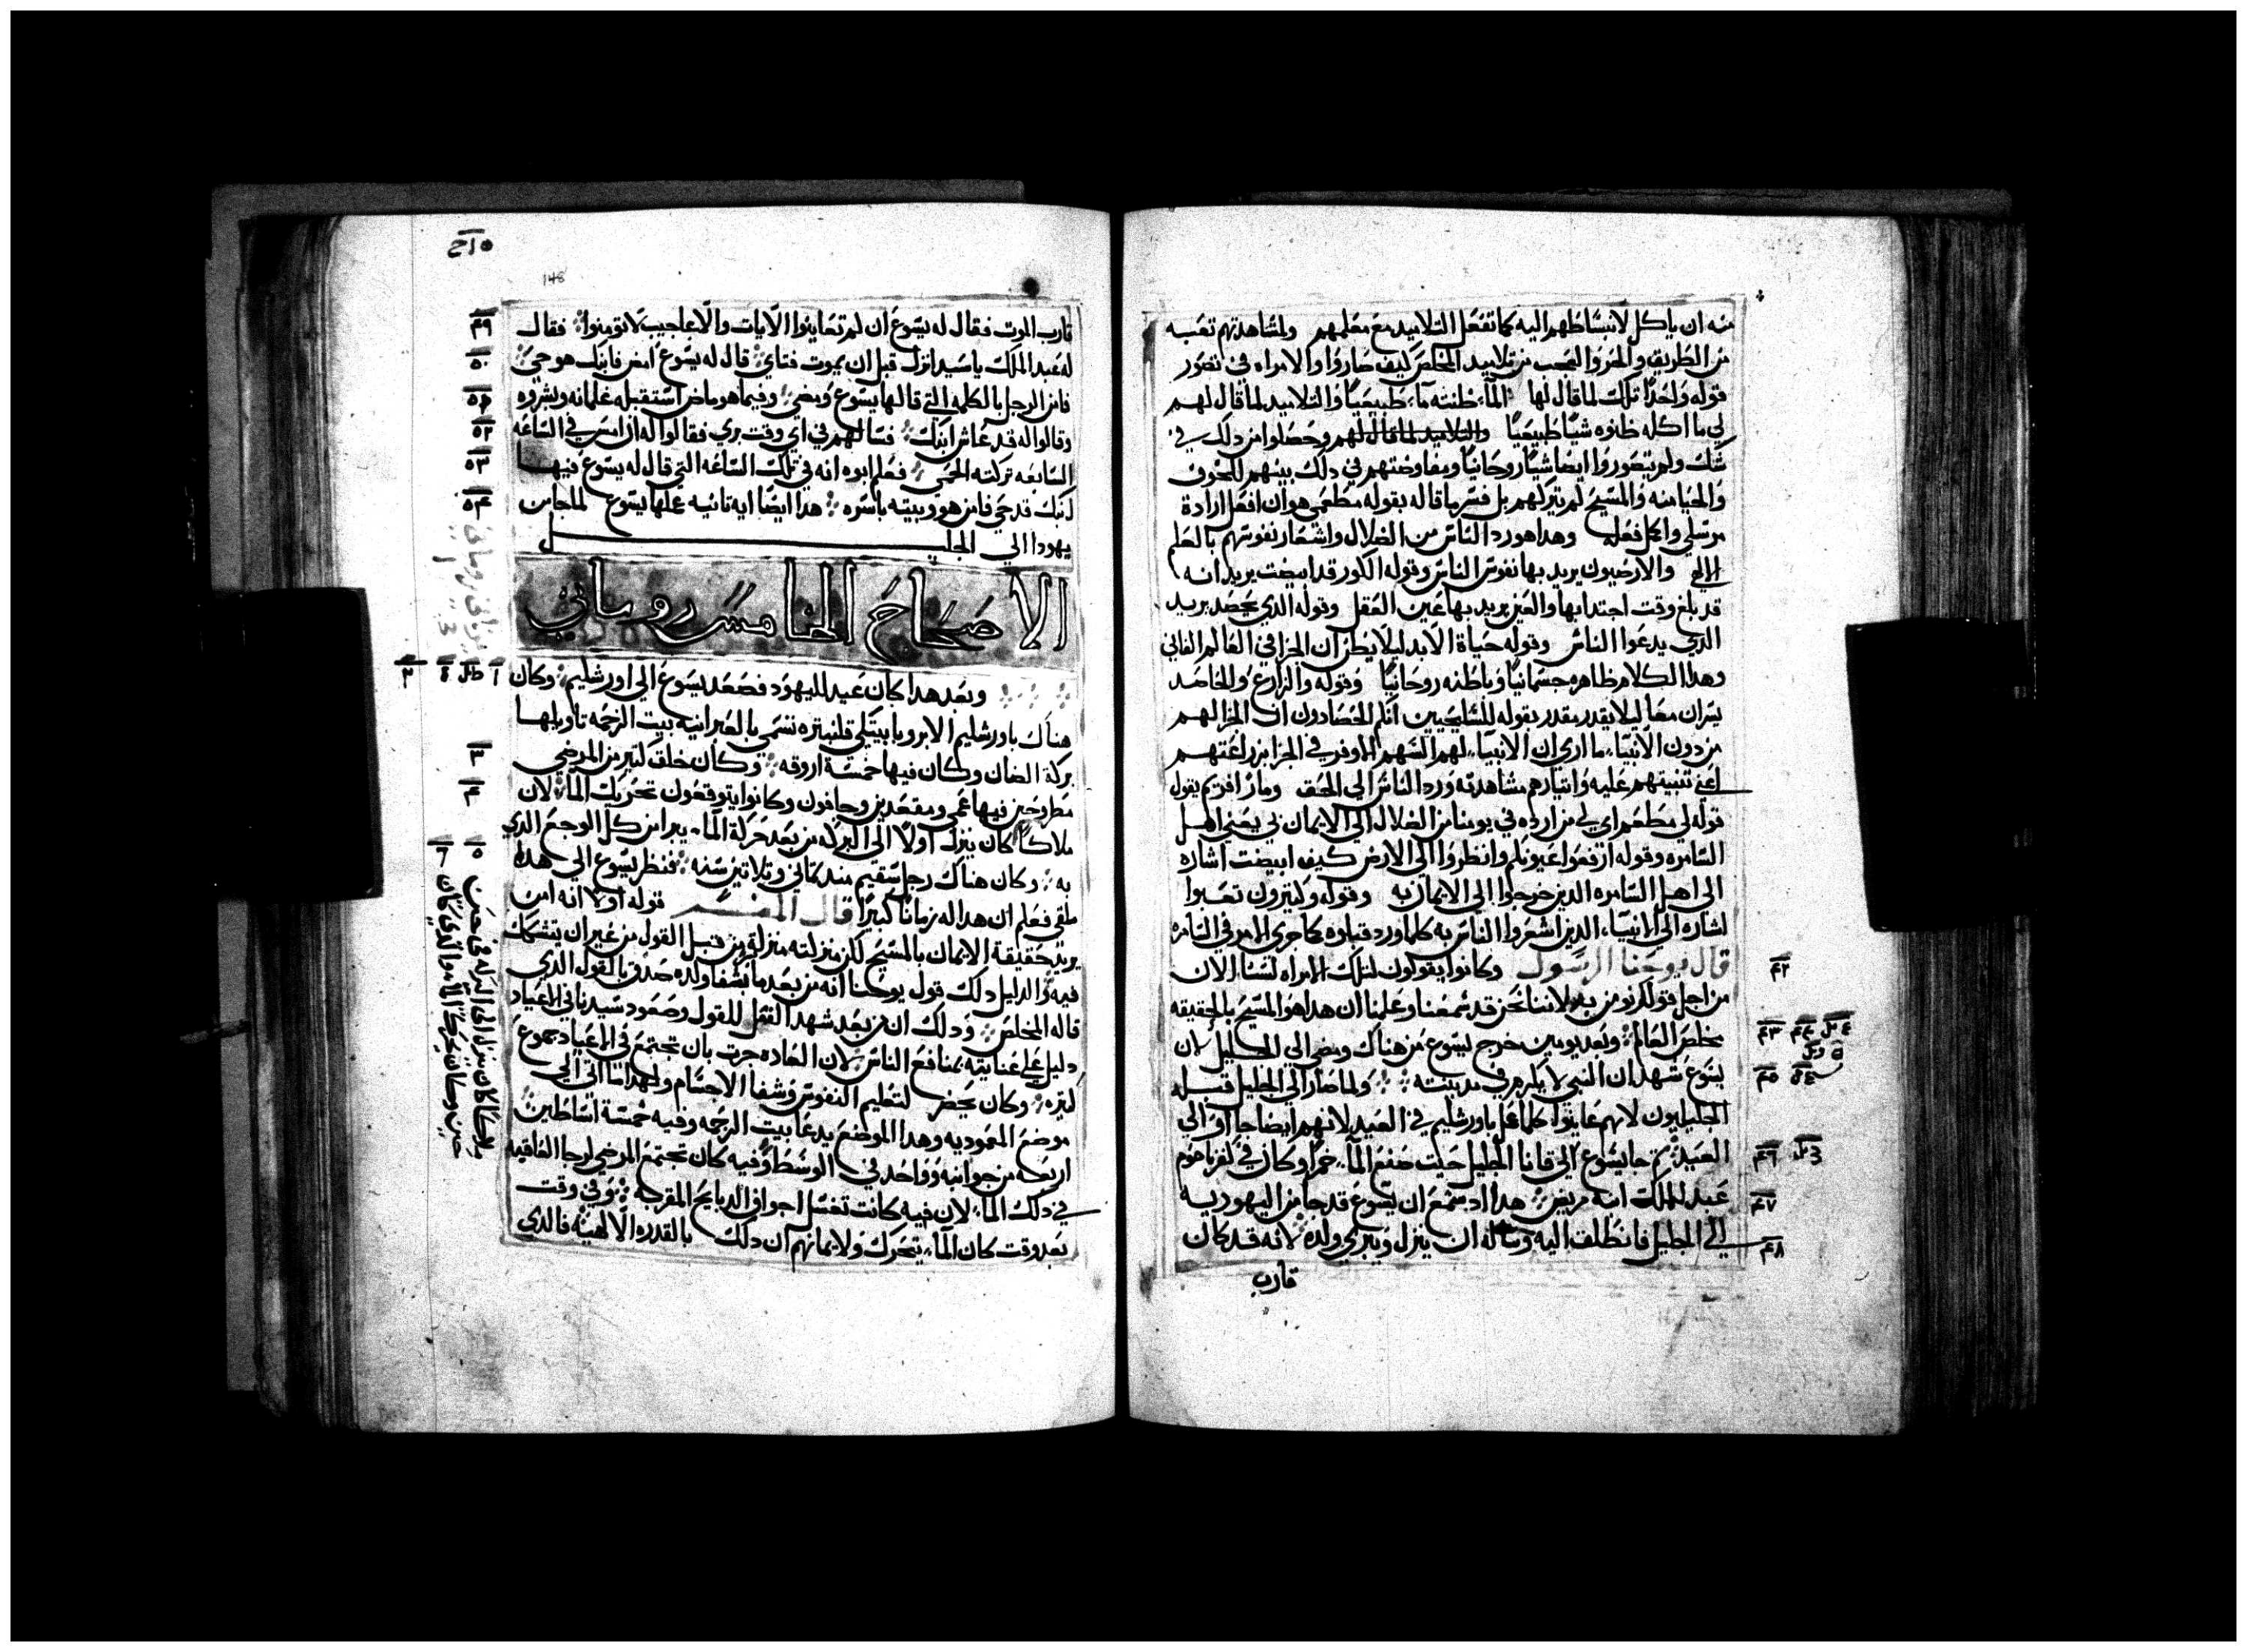 منه ان ياكل لانبساطهم اليه كما تفعل التلاميد مع معلمهم ولمشاهدتهم تعبه
من الطريق والحر والعجب من تلاميد المخلص كيف صاروا والامراه في تصور
قوله واحدا تلك لما قال لها المآء ظنته مآء طبيعيا والتلاميد لما قال لهم
لي ما اكله ظنوه شيا طبيعيا والتلاميد لما قال لهم وحصلوا من دلك في
شك ولم يتصوروا ايضا شيا روحانيا ومفاوضتهم في دلك بينهم للخوف
والحيا منه والمسيح لم يتركهم بل فسر ما قاله بقوله مطعمي هو ان افعل ارادة
مرسلي واكمل فعله وهدا هو رد الناس من الضلال واشعار نفوسهم بالعلم
الالهي والارضيون يريد بها نفوس الناس وقوله الكور قد ابيضت يريد انه
قد بلغ وقت اجتدابها والعين يريد بها عين العقل وقوله الدي يحصد يريد
الدي يدعوا الناس وقوله حياة الابد ليلا يظن ان الجزا في العالم الفاني
وهدا الكلام ظاهره جسمانيا وباطنه روحانيا وقوله والزارع والحاصد
يسران معا ليلا يقدر مقدر بقوله للسليحيين انكم الحصادون ان الجزا لهم
من دون الانبيآء ما اري ان الانبيآء لهم السهم الاوفر في الجزا بزراعتهم
اعني تنبيتهم عليه وانتيارهم مشاهدته ورد الناس الي الحق ومار افريم يقول
قوله لي مطعم اي لي من ارده في يومنا من الضلال الي الايمان بي يعني اهل
السامره وقوله ارفعوا عيونكم وانظروا الي الارض كيف ابيضت اشاره
الي اهل السامره الدين خرجوا الي الايمان به وقوله وكتيرون تعبوا
اشاره الي الانبيآء الدين اشعروا الناس به كلما ورد قبلوه كما جري الامر في السامره
قال يوحنا الرسول وكانوا يقولون لتلك الامراه لسنا الان
من اجل قولك نومن به لاننا نحن قد سمعنا وعلمنا ان هدا هو المسيح بالحقيقه
مخلص العالم وبعد يومين خرج يسوع من هناك ومضي الي الجليل لان
يسوع شهد ان النبي لا يكرم في مدينته ولما صار الي الجليل قبله
الجليليون لانهم عاينوا كلما عمل باورشليم في العيد لانهم ايضا جاآوا الي
العيد تم جا يسوع الي قانا الجليل حيت صنع المآء خمرا وكان في كفرناحوم
عبد للملك ابنه مريض هدا اد سمع ان يسوع قد جا من اليهوديه
الي الجليل فانطلق اليه وساله ان ينزل ويبري ولده لانه قد كان
قارب
٤٢
٤٣
٤٤
٤٥
٤٦
٤٧
٤٨
148
قارب الموت فقال له يسوع ان لم تعاينوا الايات والاعاجيب لا تومنوا فقال
له عبد الملك يا سيد انزل قبل ان يموت فتاي قال له يسوع امض فابنك هو حي
فامن الرجل بالكلمه التي قالها يسوع ومضي وفيما هو ماض استقبله غلمانه وبشروه
وقالوا له قد عاش ابنك فسالهم في اي وقت بري فقالوا له ان امس في الساعه
السابعه تركته الحمي فعلم ابوه انه في تلك الساعه التي قال له يسوع فيها
ابنك قد حي فامن هو وبيته باسره هدا ايضا ايه تانيه عملها يسوع لما جا من
يهودا الي الجليل
الاصحاح الخامس روماني
وبعد هدا كان عيد لليهود فصعد يسوع الي اورشليم وكان
هناك باورشليم الابروباتيكي قلنبتره تسمي بالعبرانيه بيت الرحمه تاويلها
بركة الضان وكان فيها خمسة اروقه وكان خلق كتير من المرضي
مطروحين فيها عمي ومقعدين وجافون وكانوا يتوقعون تحريك المآء لان
ملاكا كان ينزل اولا الي البركه من بعد حركة المآء يبرا من كل الوجع الدي
به وكان هناك رجل سقيم مند تماني وتلاتين سنه فنظر يسوع الي هدا
ملقي فعلم ان هدا له زمانا كبيرا قال المفسر قوله اولا انه امن
يريد حقيقة الايمان بالمسيح لكن منزلته منزلة من قبل القول من غير ان يتشكك
فيه والدليل دلك قول يوحنا انه من بعد ما شفا ولده صدق بالقول الدي
قاله المخلص ودلك ان من بعد شهد الفعل للقول وصعود سيدنا في الاعياد
دليل علي عنايته بمنافع الناس لان العاده جرت بان تجتمع في الاعياد جموع
كتيره وكان يحضر لتعليم النفوس وشفا الاجسام ولهدا اتي الي
موضع المعموديه وهدا الموضع يدعا بيت الرحمه وفيه خمسة اساطين
اربعه من جوانبه وواحد في الوسط وفيه كان تجتمع المرضي لرجا العافيه
في دلك المآء لان فيه كانت تغسل اجواف الدبايح المقربه وفي وقت
بعد وقت كان المآء يتحرك ولايمانهم ان دلك بالقدره الالهيه فالدي
٤٩
٥٠
٥١
٥٢
٥٣
٥٤
٢
٣
٤
٥
٦
ملاكا كان ينزل الي البركه في حين
حين وكان يحرك المآء والدي كان